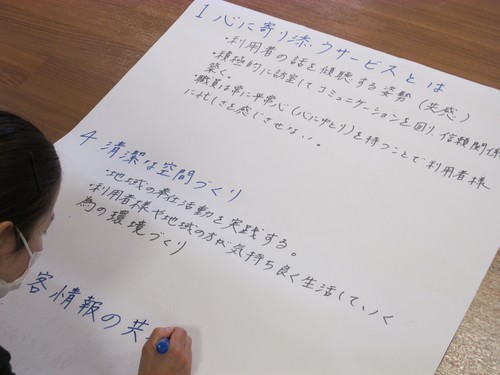 1 心に寄り添うサービスとは
・利用者の話を傾聴する姿勢(共感)
・積極的に訪室してコミュニケーションを図り、信頼関係
築く。
・職員は常に平常心(心にゆとり)を持つことで利用者様
に忙しさを感じさせない。
4 清潔な空間づくり
・地域の奉仕活動を実践する。
・利用者様や地域の方が気持ち良く生活していく
為の環境づくり
客情報の共